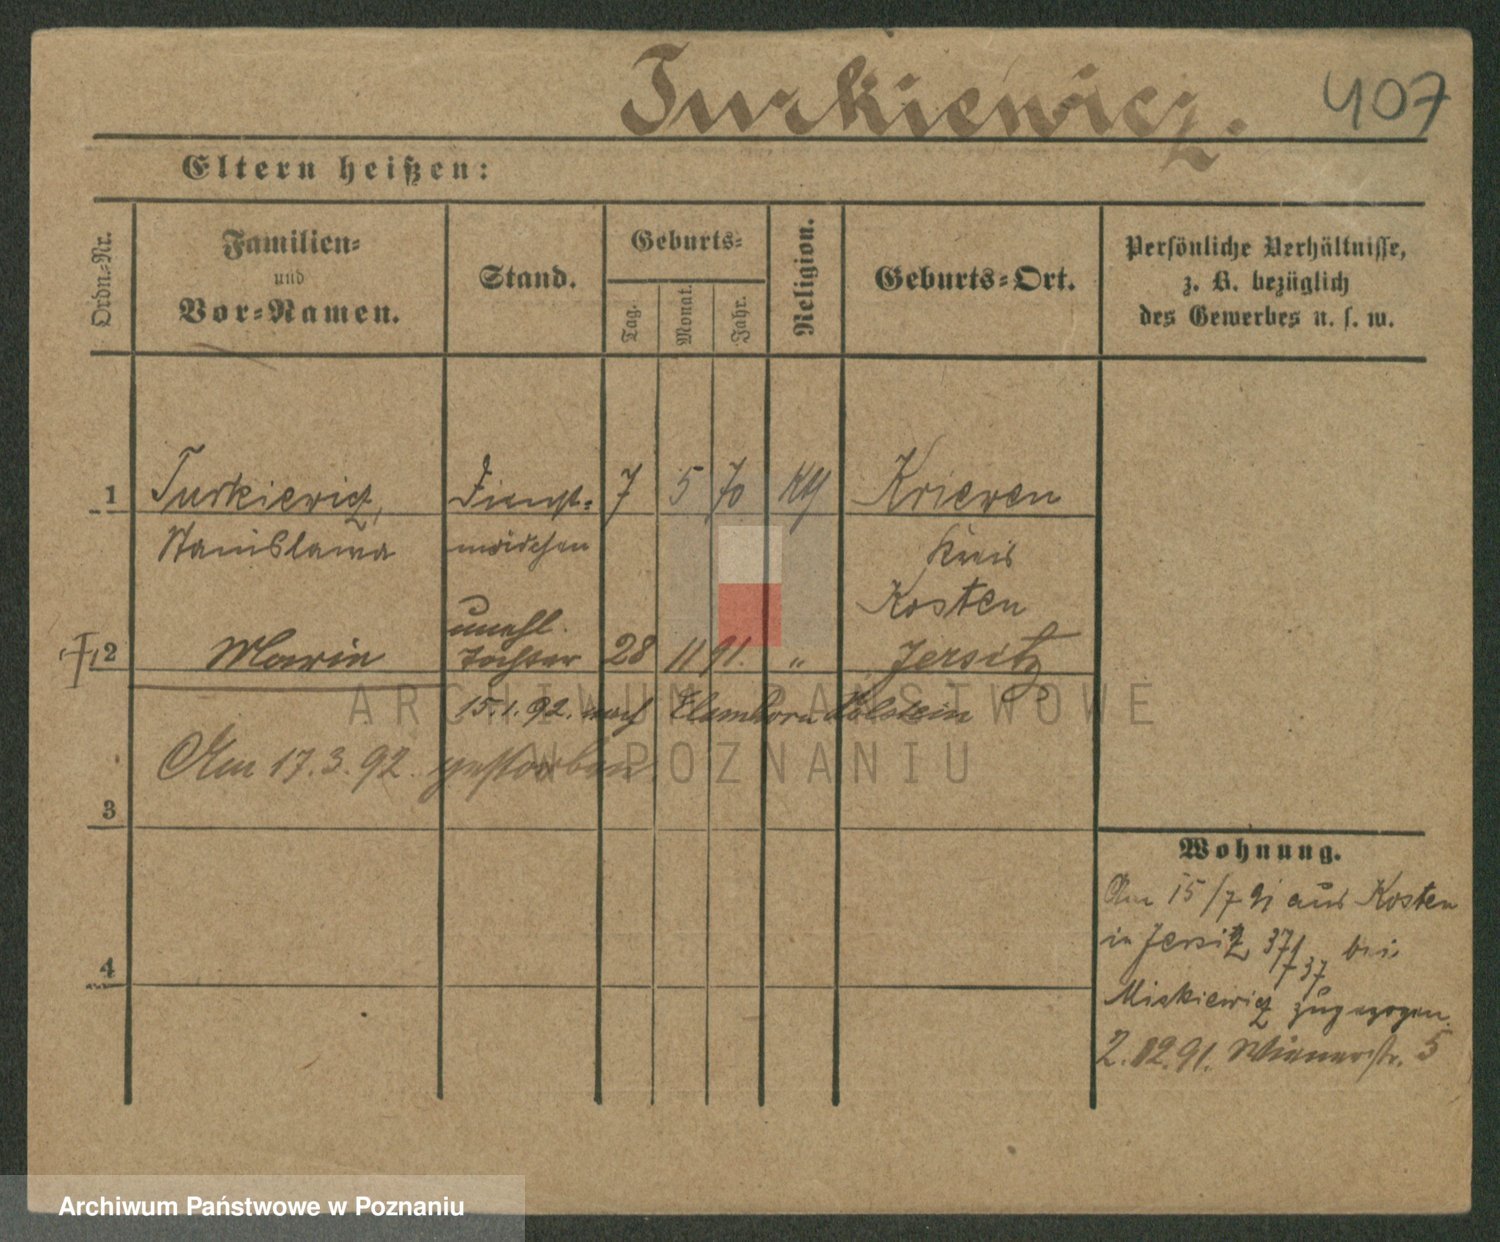 Turkiewicz.
407
Eltern heißen:
Ordn.-Nr.
Familien-
und
Vor-Namen.
Stand.
Geburts-
Tag.
Monat.
Jahr.
Religion.
Geburts-Ort.
Persönliche Verhältnisse,
z. B. bezüglich
des Gewerbes u. s. w.
1 Turkiewicz, Dienst- 7 5 70 Krieven
Stanislawa mädchen Kreis
Kosten
2 Maria unehl. Tochter 28 11 91. " Jersitz
15.1.92. nach Elmshorn Holstein
Am 17.3.92. gestorben
3
4
Wohnung.
Am 15/7 91 aus Kosten
in Jersitz, 37/37 bei
Mickiewicz zugezogen.
2.12.91. Wienerstr. 5
ARCHIWUM PAŃSTWOWE
W POZNANIU
Archiwum Państwowe w Poznaniu